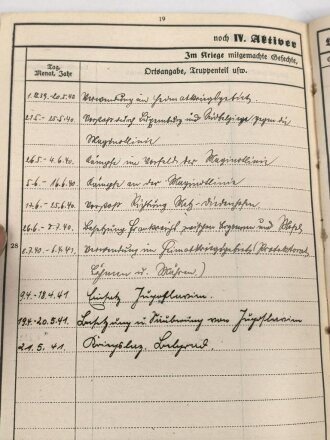 19
noch IV. Aktiver
Im Kriege mitgemachte Gefechte,
Tag,
Monat, Jahr
Ortsangabe, Truppenteil usw.
1.12.39.-20.5.40 Verwendung im Heimatkriegsgebiet.
21.5.- 25.5.40. Vormarsch durch Luxemburg und Südbelgien gegen die
Maginotlinie
26.5.- 4.6.40. Kämpfe im Vorfeld der Maginotlinie
5.6.- 16.6.40 Kämpfe an der Maginotlinie
17.6.- 25.6.40. Vorstoß Richtung Metz-Diedenhofen
26.6.- 5.7.40. Besetzung Frankreichs zwischen und Mosel
28
6.7.40.- 6.4.41. Verwendung im Heimatkriegsgebiet (Protektorat
Böhmen u. Mähren)
9.4.-18.4.41 Einsatz Jugoslavien.
19.4.-20.5.41. Besetzung u. Säuberung von Jugoslavien
21.5.41. Kriegslaz. Belgrad.